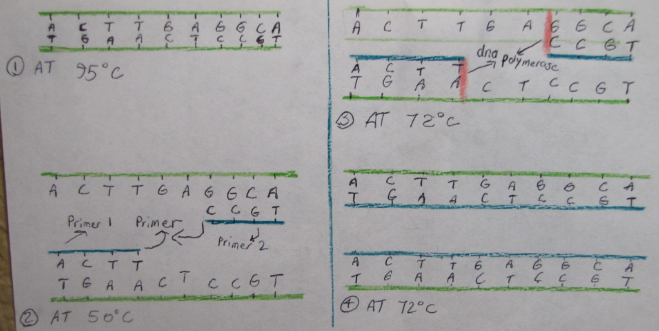 A C T T G A G G C A
T G A A C T C C G T
① AT 95°C
A C T T G A G G C A
C C G T
Primer 1 Primer
Primer 2
A C T T
T G A A C T C C G T
② AT 50°C
A C T T G A G G C A
C C G T
dna
polymerase
A C T T
T G A A C T C C G T
③ AT 72°C
A C T T G A G G C A
T G A A C T C C G T
A C T T G A G G C A
T G A A C T C C G T
④ AT 72°C